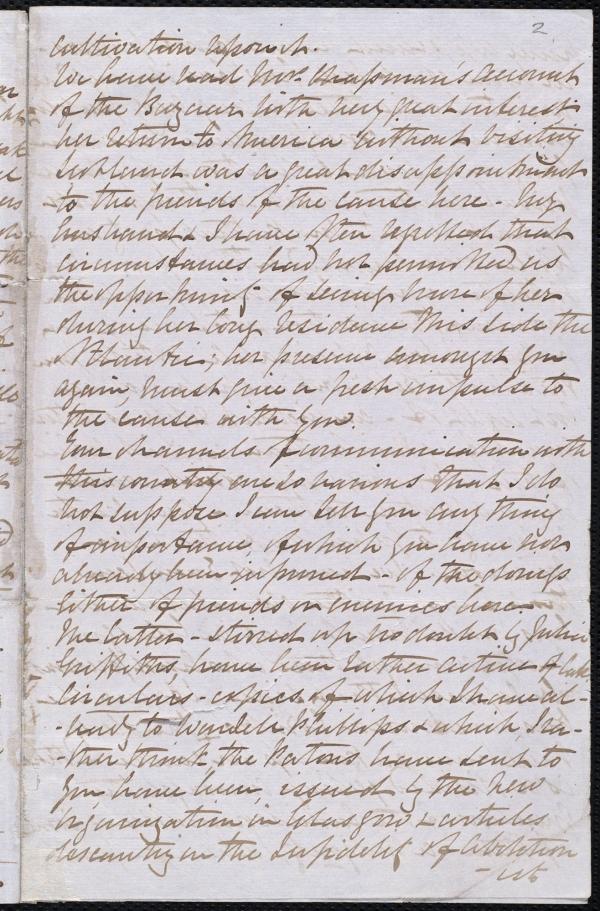 2
cultivation upon it.
We have read Mrs. Chapman's account
of the Bazaar with very great interest
her return to America without visiting
Scotland was a great disappointment
to the friends of the cause here - My
husband & I have often regretted that
circumstances had not permitted us
the opportunity of seeing more of her
during her long residence this side the
Atlantic; her presence amongst you
again must give a fresh impulse to
the cause with you.
Your channels of communication with
this country are so various that I do
not suppose I can tell you any thing
of importance, of which you have not
already been informed - of the doings
either of friends or enemies here
The latter - stirred up no doubt by Julia
Griffiths, have been rather active of late
Circulars - copies of which I have al-
-ready to Wendell Phillips & which I ra-
-ther think the Patons have sent to
you have been issued by the new
organization in Glasgow & articles
descanting on the Infidelity of Abolition
-ists